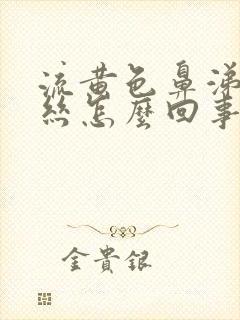 流黃色鼻涕
絲怎麼回事
金貴銀